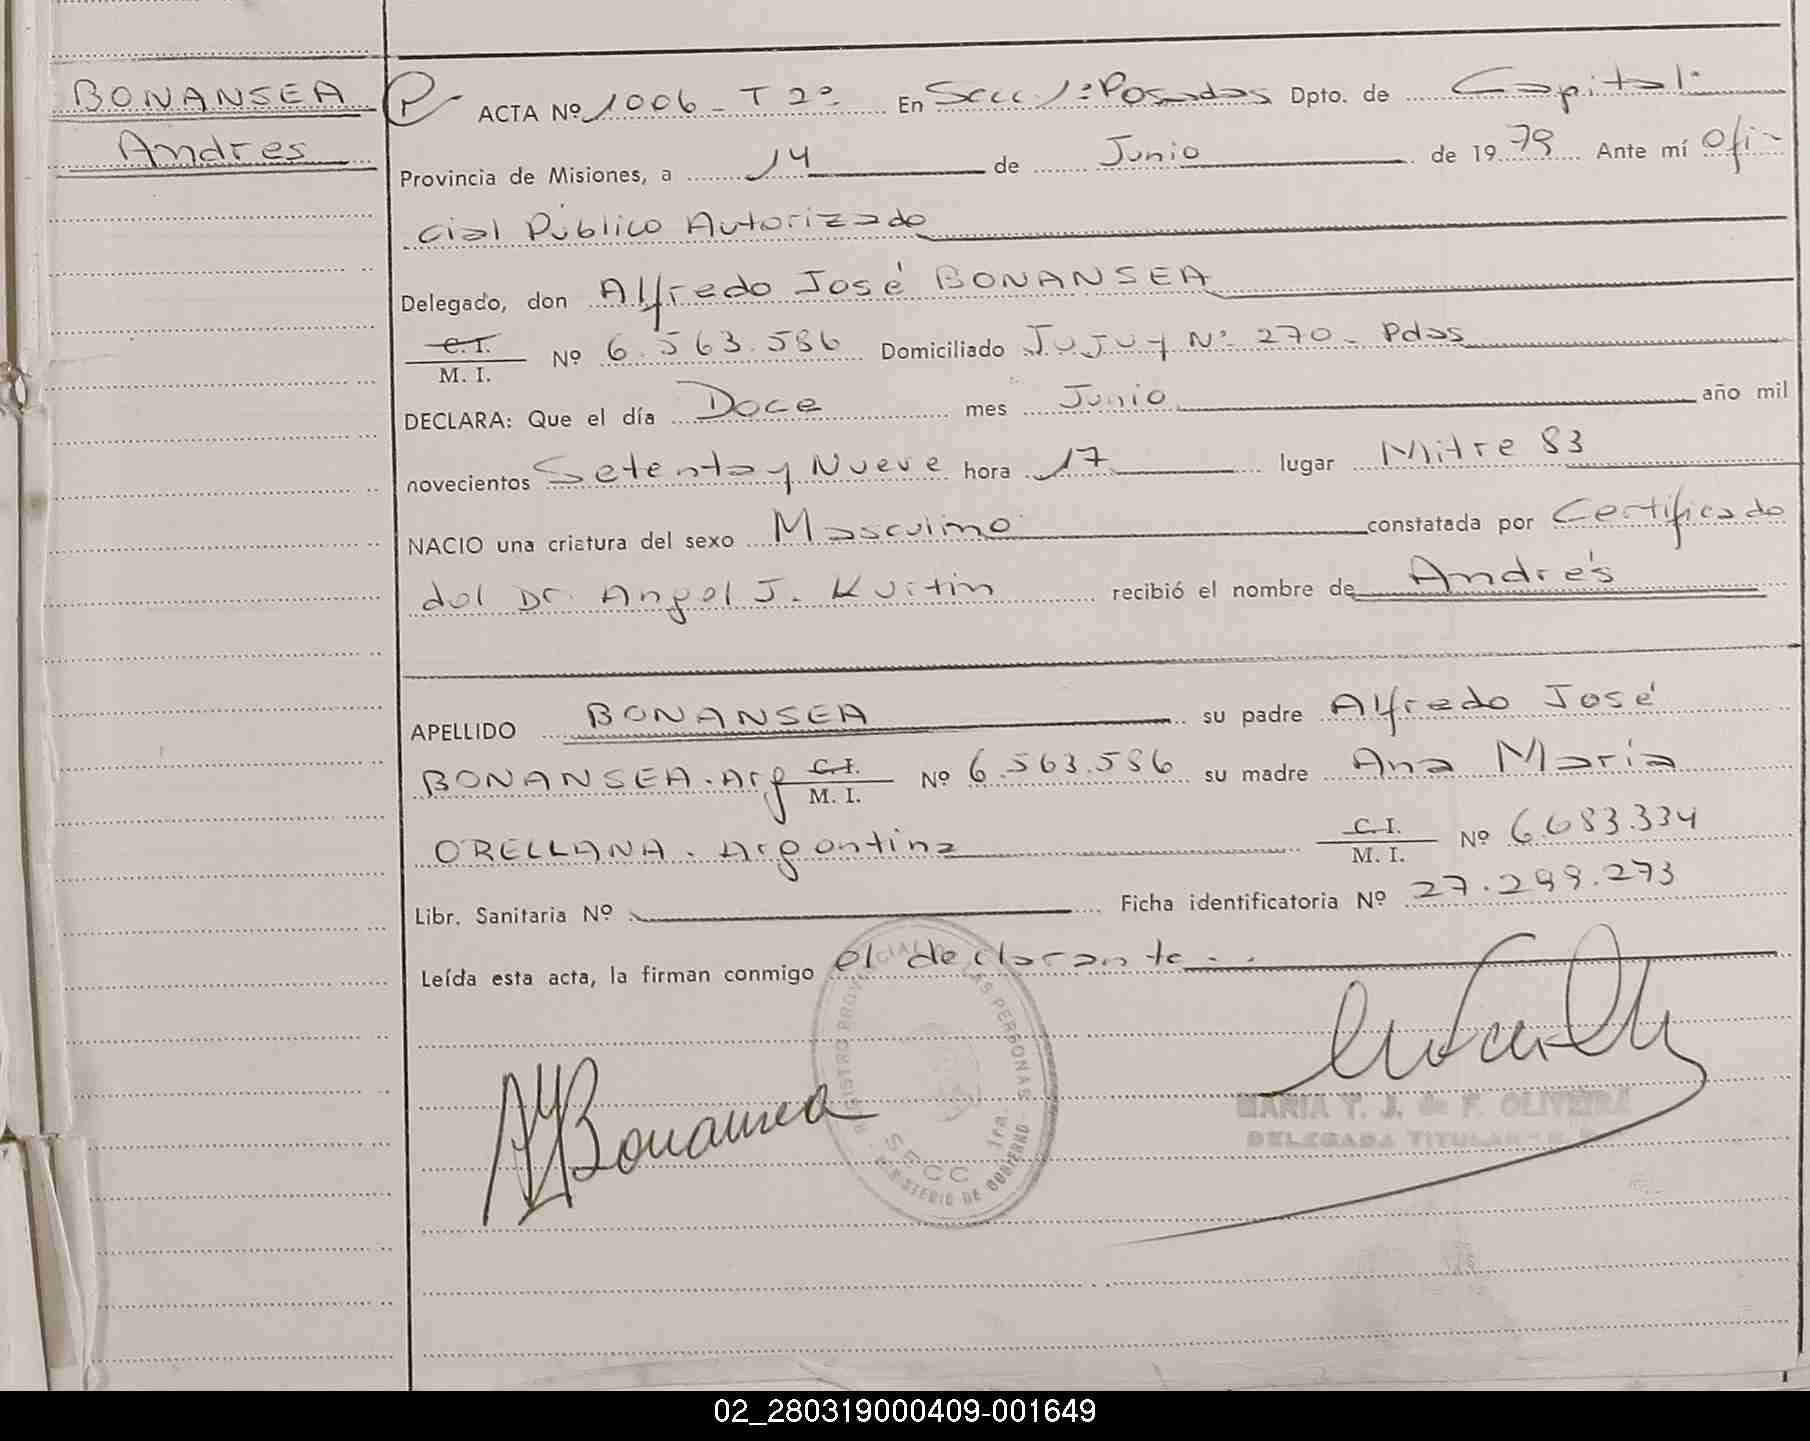 BONANSEA
Andres
P ACTA Nº 1006 - T 2º En Secc. 1ª Posadas Dpto. de Capital
Provincia de Misiones, a 14 de Junio de 1979 Ante mí Ofi-
cial Público Autorizado
Delegado, don Alfredo José BONANSEA
C. I.
M. I. Nº 6.563.586 Domiciliado Jujuy Nº 270 - Pdas
DECLARA: Que el día Doce mes Junio año mil
novecientos Setenta y Nueve hora 17 lugar Mitre 83
NACIO una criatura del sexo Masculino constatada por Certificado
del Dr. Angel J. Kuitin recibió el nombre de Andrés
APELLIDO BONANSEA su padre Alfredo José
BONANSEA. Arg C. I. M. I. Nº 6.563.586 su madre Ana María
ORELLANA. Argentina C. I. M. I. Nº 6.683.334
Libr. Sanitaria Nº Ficha identificatoria Nº 27.299.273
Leída esta acta, la firman conmigo el declarante..
REGISTRO PROVINCIAL DE LAS PERSONAS
SECC. 1ra.
MINISTERIO DE GOBIERNO
Bonansea
MARIA T. J. de F. OLIVEIRA
DELEGADA TITULAR
02_280319000409-001649